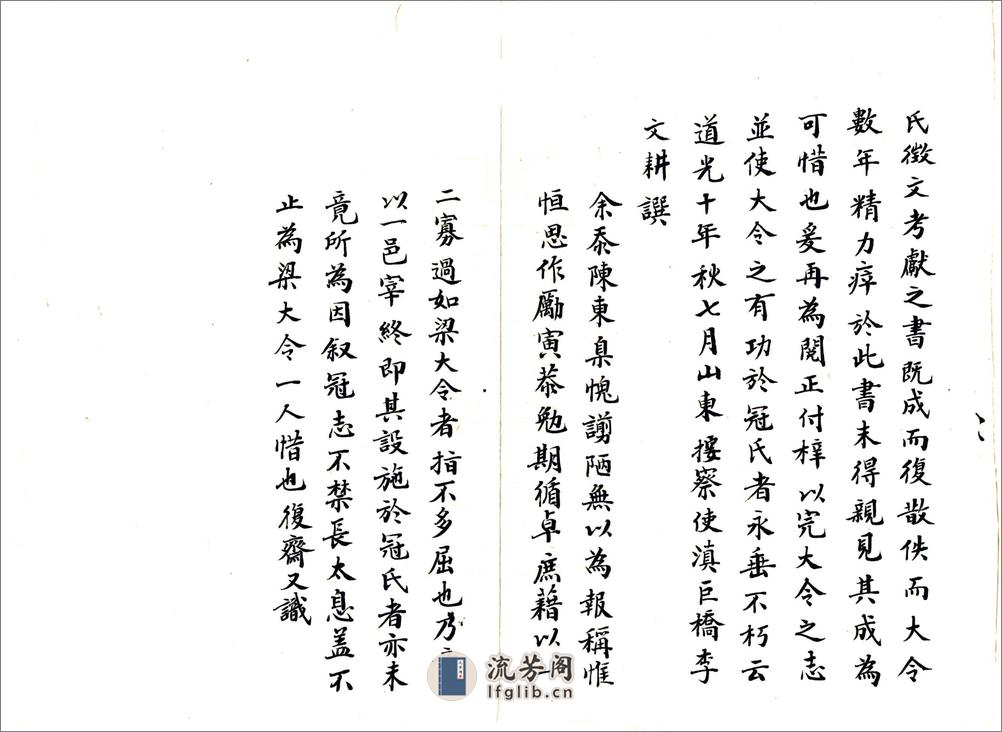 氏徵文考獻之書既成而復散佚而大令
數年精力瘁於此書未得親見其成為
可惜也爰再為閱正付梓以完大令之志
並使大令之有功於冠氏者永垂不朽云
道光十年秋七月山東按察使滇巨橋李
文耕譔
余忝陳東臬愧謭陋無以為報稱惟
恒思作勵寅恭勉期循卓庶藉以
二寡過如梁大令者指不多屈也乃
以一邑宰終即其設施於冠氏者亦未
竟所為因叙冠志不禁長太息蓋不
止為梁大令一人惜也復齋又識
流芳阁
lfglib.cn